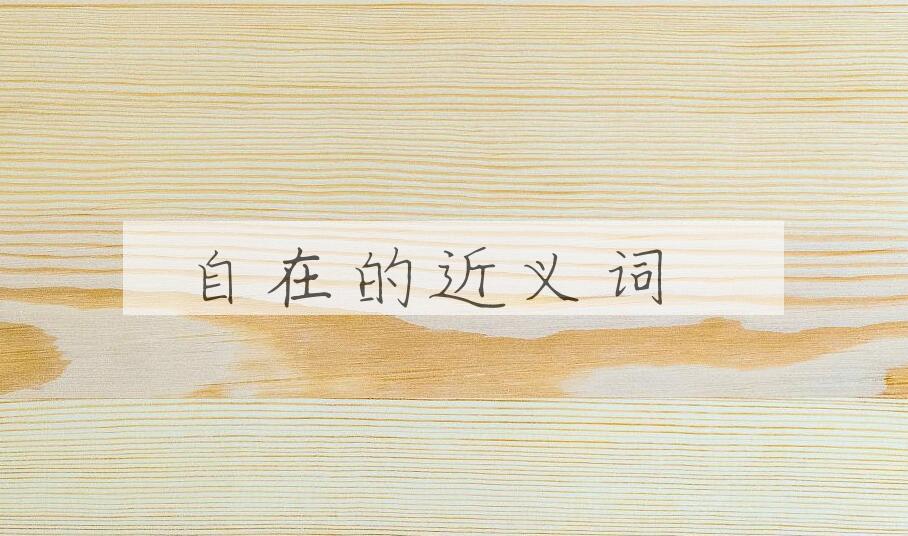 自在的近义词